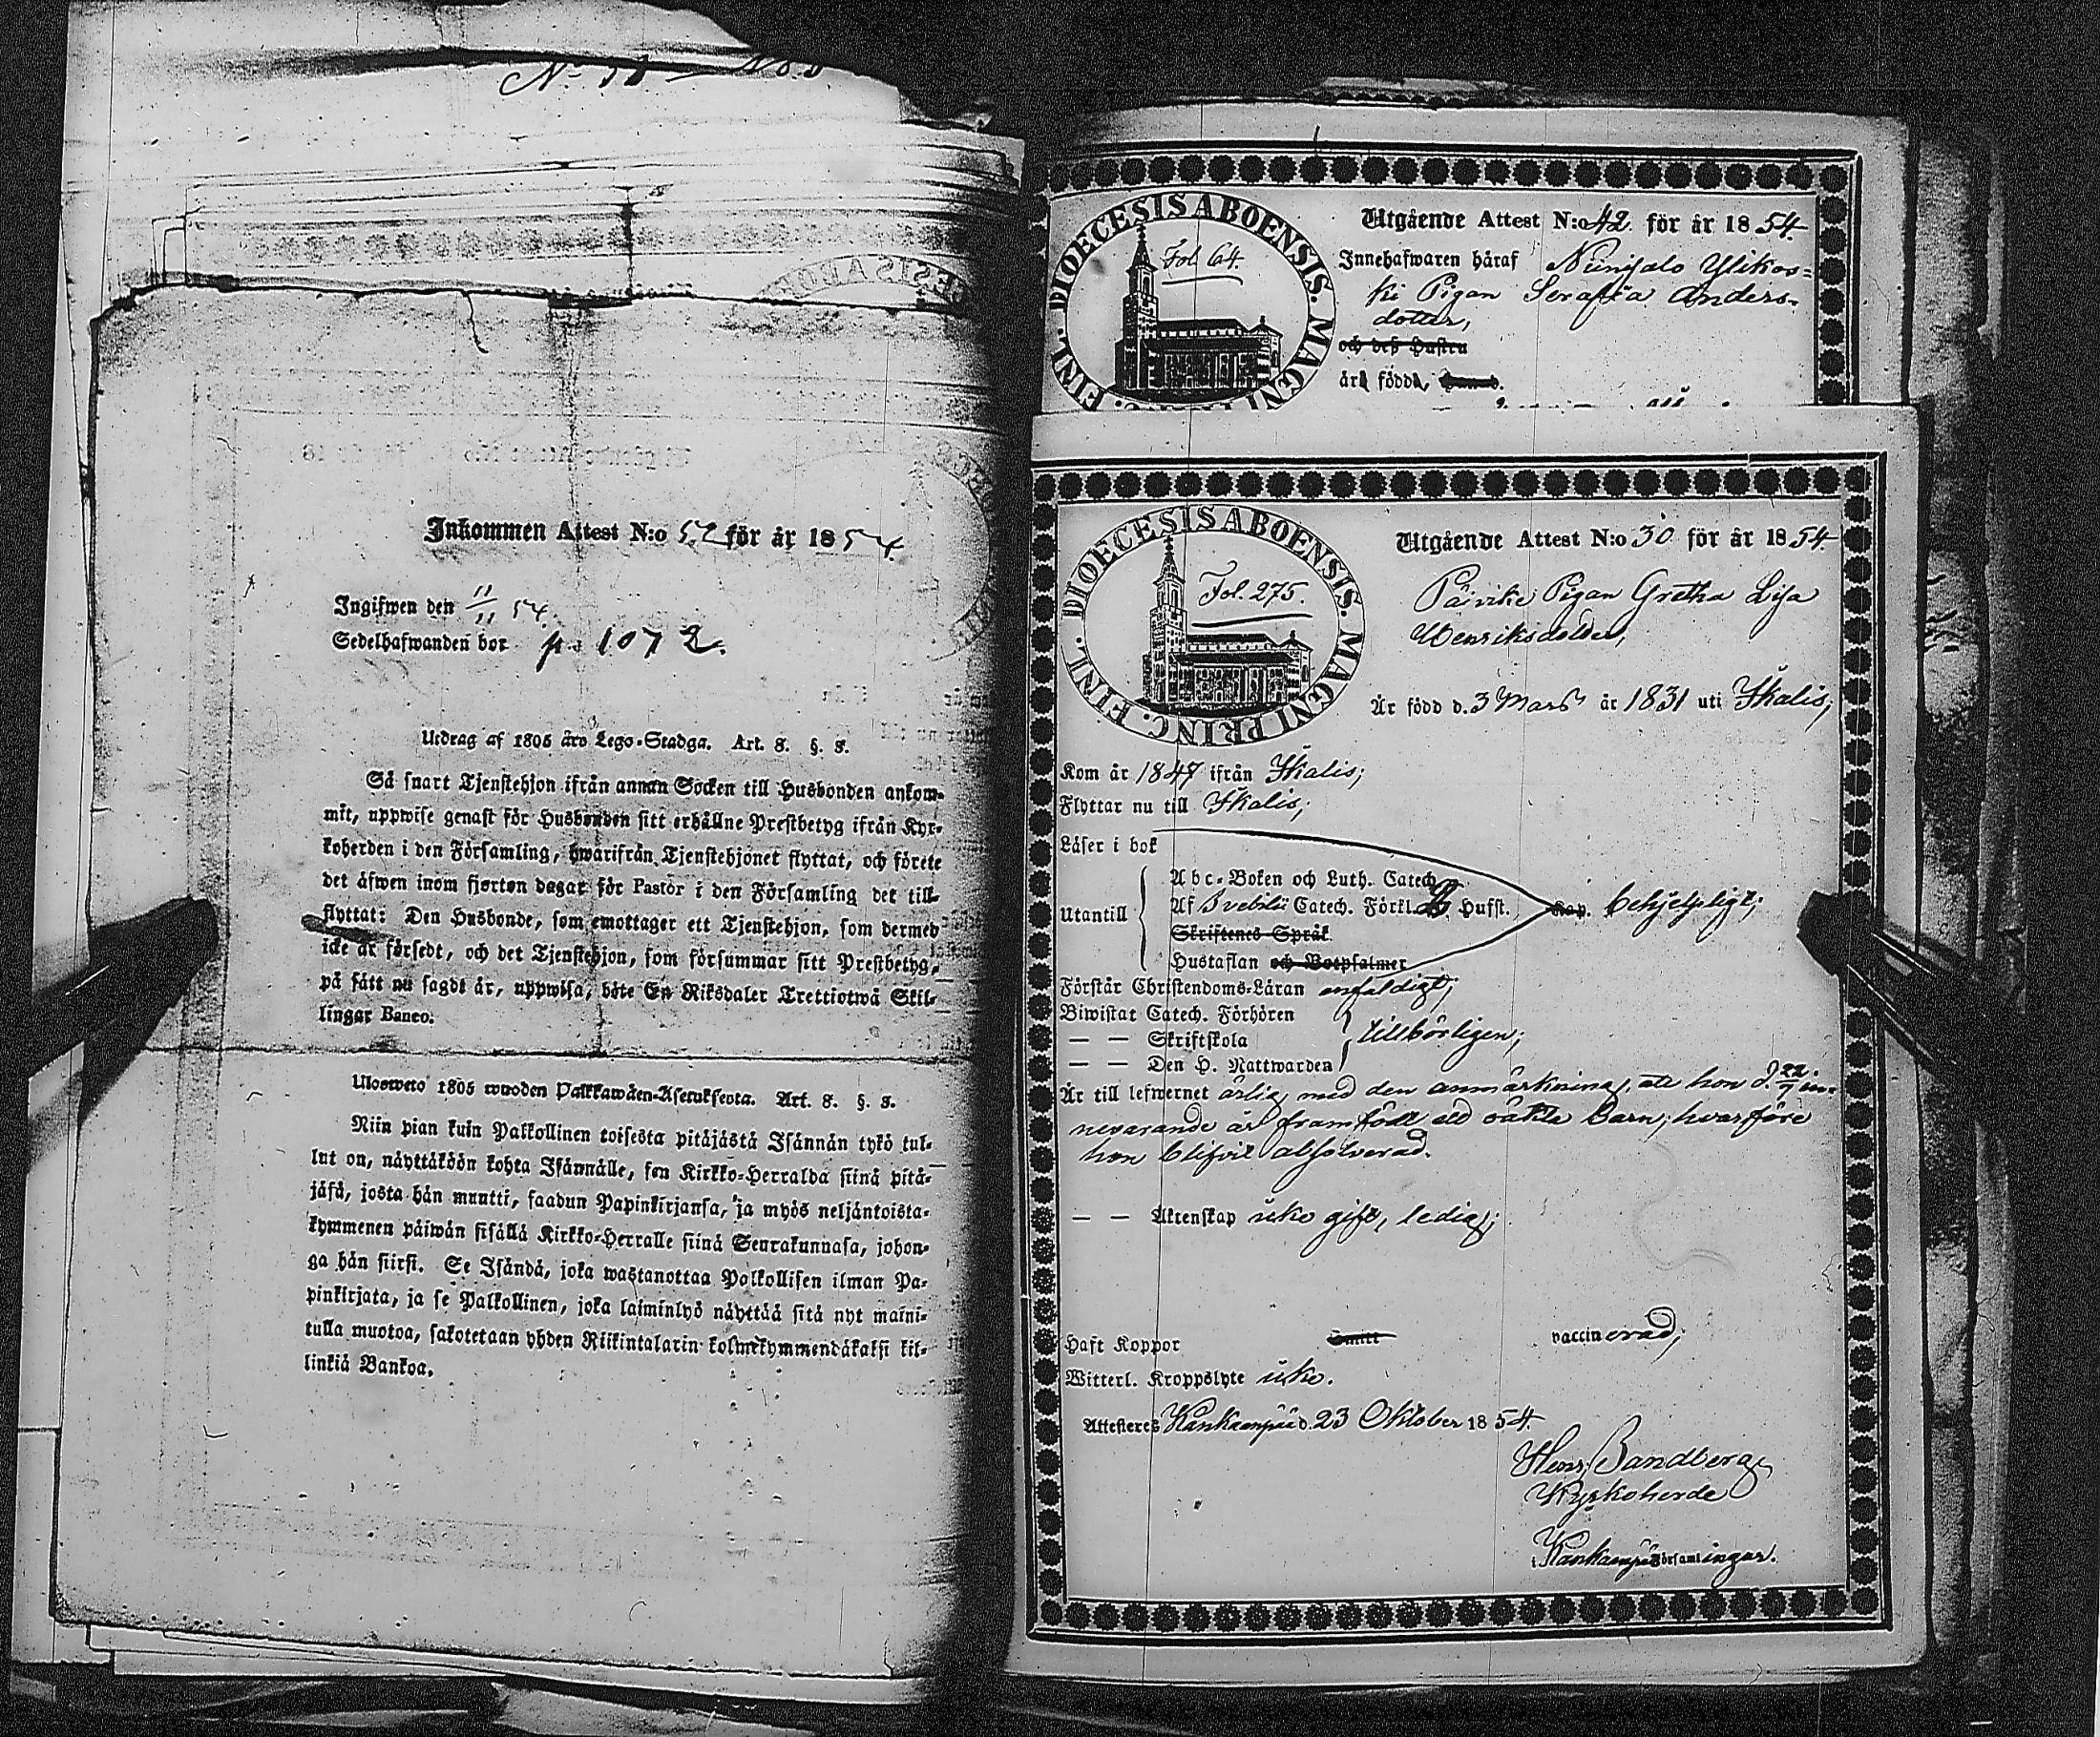 Inkommen Attest N:o 52 för år 1854
Ingifwen den 11/11 54.
Sedelhafwanden bor p. 1072.
Utdrag af 1805 års Lego-Stadga. Art. 8. §. 8.
Så snart Tjenstehjon ifrån annan Socken till Husbonden ankom-
mit, uppwise genast för Husbonden sitt erhållne Prestbetyg ifrån Kyr-
koherden i den Församling, hwarifrån Tjenstehjonet flyttat, och förete
det äfwen inom fjorton dagar för Pastor i den Församling det till-
flyttat: Den Husbonde, som emottager ett Tjenstehjon, som dermed
icke är försedt, och det Tjenstehjon, som försummar sitt Prestbetyg,
på sätt nu sagdt är, uppwisa, böte En Riksdaler Trettiotwå Skil-
lingar Banco.
Ulosweto 1805 wuoden Palkkawäen-Asetuksesta. Art. 8. §. 8.
Niin pian kuin Palkollinen toisesta pitäjästä Isännän tykö tul-
lut on, näyttäköön kohta Isännälle, sen Kirkko-Herralda siinä pitä-
jäsä, josta hän muutti, saadun Papinkirjansa, ja myös neljäntoista-
kymmenen päiwän sisällä Kirkko-Herralle siinä Seurakunnasa, johon-
ga hän siirsi. Se Isändä, joka wastanottaa Palkollisen ilman Pa-
pinkirjata, ja se Palkollinen, joka laiminlyö näyttää sitä nyt maini-
tulla muotoa, sakotetaan yhden Riikintalarin kolmekymmendäkaksi kil-
linkiä Bankoa.
DIOECESIS ABOENSIS. MAGNI PRINC. FINL.
Fol. 64.
Utgående Attest N:o 42 för år 1854.
Innehafwaren häraf Niinisalo Ylikos-
ki Pigan Serafia Anders-
dotter,
och deß Hustru
är född,
DIOECESIS ABOENSIS. MAGNI PRINC. FINL.
Fol. 275.
Utgående Attest N:o 30 för år 1854.
Päivike Pigan Gretha Lisa
Henriksdotter,
Är född d. 3 Mars år 1831 uti Ikalis,
Kom år 1847 ifrån Ikalis;
Flyttar nu till Ikalis;
Läser i bok
Utantill
Abc-Boken och Luth. Catech.
Af Svebilii Catech. Förkl. Hufst. Kap. behjelpligt;
Skriftenes Språk
Hustaflan och Botpsalmer
Förstår Christendoms-Läran enfaldigt;
Biwistat Catech. Förhören
— — Skriftskola tillbörligen;
— — Den H. Nattwarden
Är till lefwernet ärlig, med den anmärkning, att hon d. 22/7 in-
nevarande år framfödt ett oäkta barn, hvarföre
hon blifvit absolverad.
— — Äktenskap icke gift, ledig;
Haft Koppor Smitt vaccinerad;
Witterl. Kroppslyte icke.
Attesteres Kankaanpää d. 23 Oktober 1854.
Henr. Sandberg
Kyrkoherde
i Kankaanpää Församlingar.